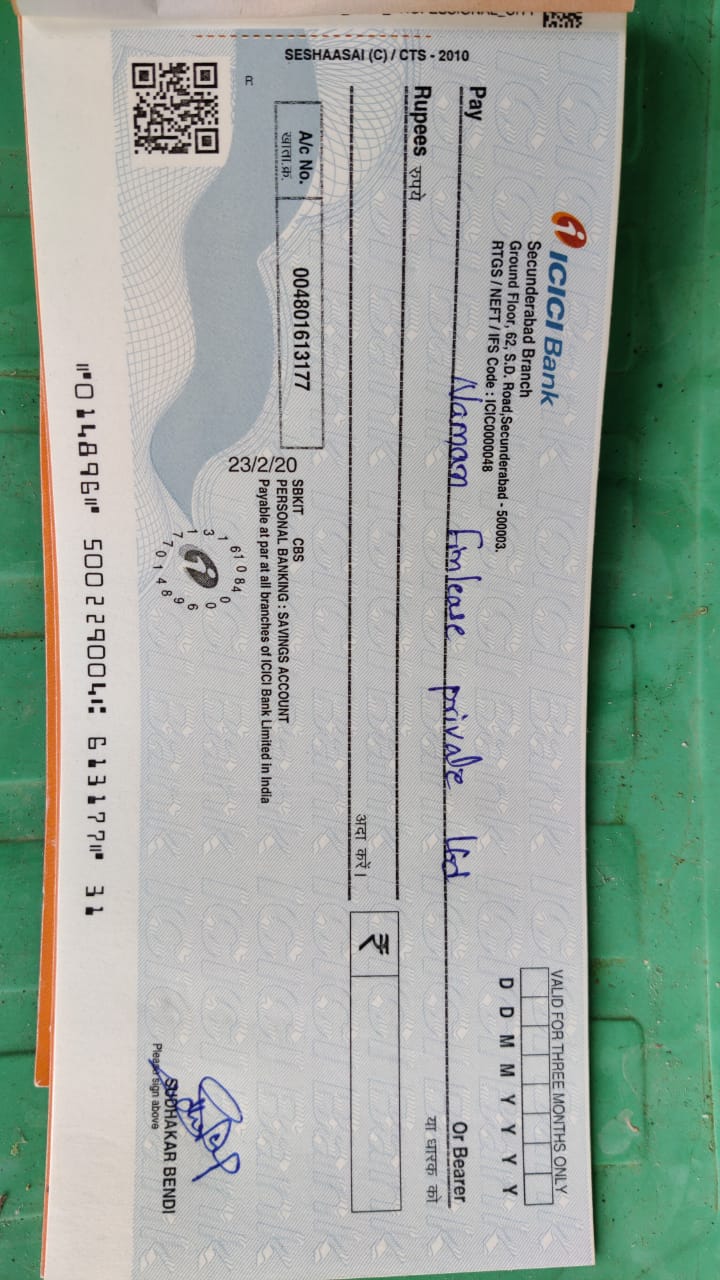 ICICI Bank
Secunderabad Branch
Ground Floor, 62, S.D. Road,Secunderabad - 500003.
RTGS / NEFT / IFS Code : ICIC0000048
VALID FOR THREE MONTHS ONLY
D D M M Y Y Y Y
Pay Naman Finlease private ltd Or Bearer
या धारक को
Rupees रुपये
अदा करें।
₹
A/c No.
खाता.क्र.
004801613177
23/2/20
SBKIT CBS
PERSONAL BANKING : SAVINGS ACCOUNT
Payable at par at all branches of ICICI Bank Limited in India
SUDHAKAR BENDI
Please sign above
SESHAASAI (C) / CTS - 2010
⑈014896⑈ 500229004⑆ 613177⑈ 31